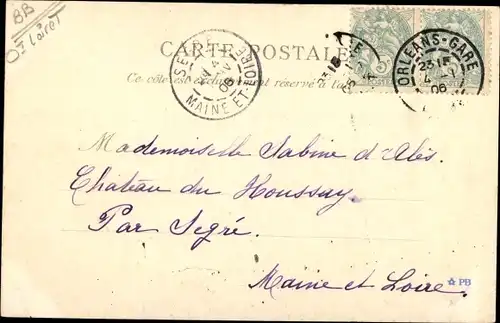 BB
Loiret
CARTE POSTALE
Ce côté est exclusivement réservé à l'a
SEGRÉ
06
MAINE-ET-LOIRE
ORLEANS-GARE
23
4
06
Mademoiselle Sabine d'
Château du Houssay.
Par Segré.
Maine et Loire.
PB